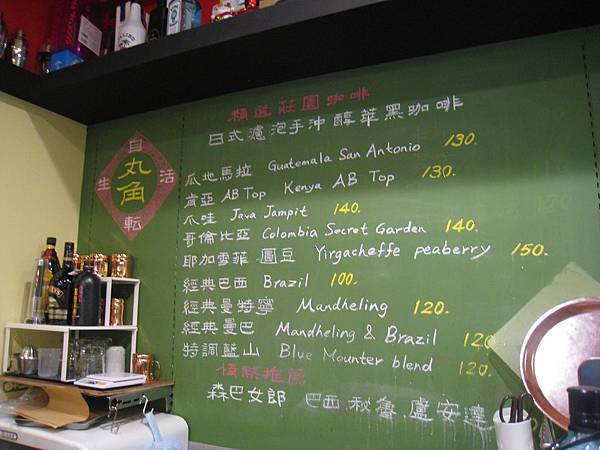 精選莊園咖啡
日式濾泡手沖 醇萃黑咖啡
瓜地馬拉 Guatemala San Antonio 130.
肯亞 AB Top Kenya AB Top 130.
爪哇 Java Jampit 140.
哥倫比亞 Colombia Secret Garden 140.
耶加雪菲 圓豆 Yirgacheffe peaberry 150.
經典巴西 Brazil 100.
經典曼特寧 Mandheling 120.
經典曼巴 Mandheling & Brazil 120
特調藍山 Blue Mounter blend 120.
優惠推薦
森巴女郎 巴西.秘魯.盧安達
自
丸角
生 活
転